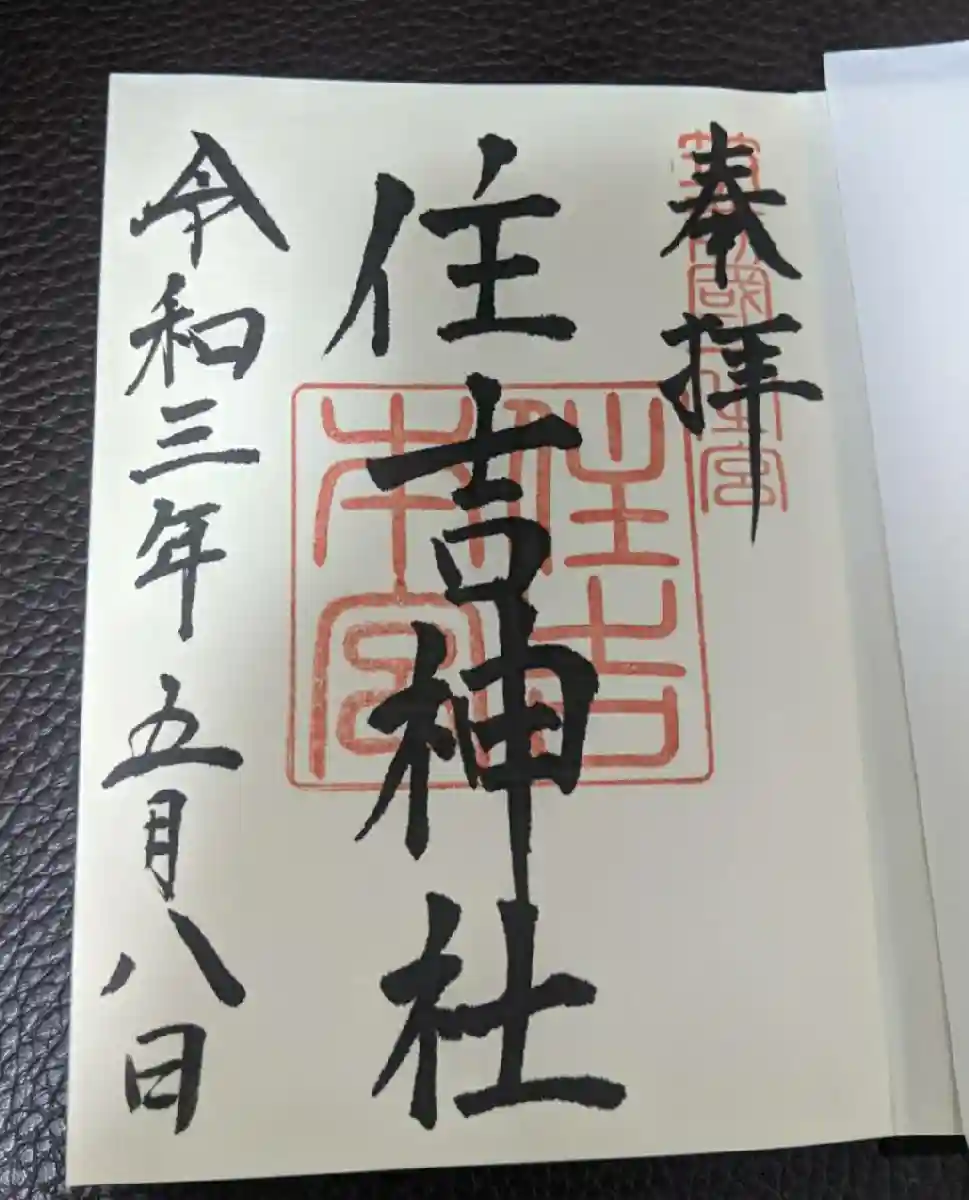 奉拝
筑前國一之宮
住吉神社
住吉
本宮
令和三年五月八日